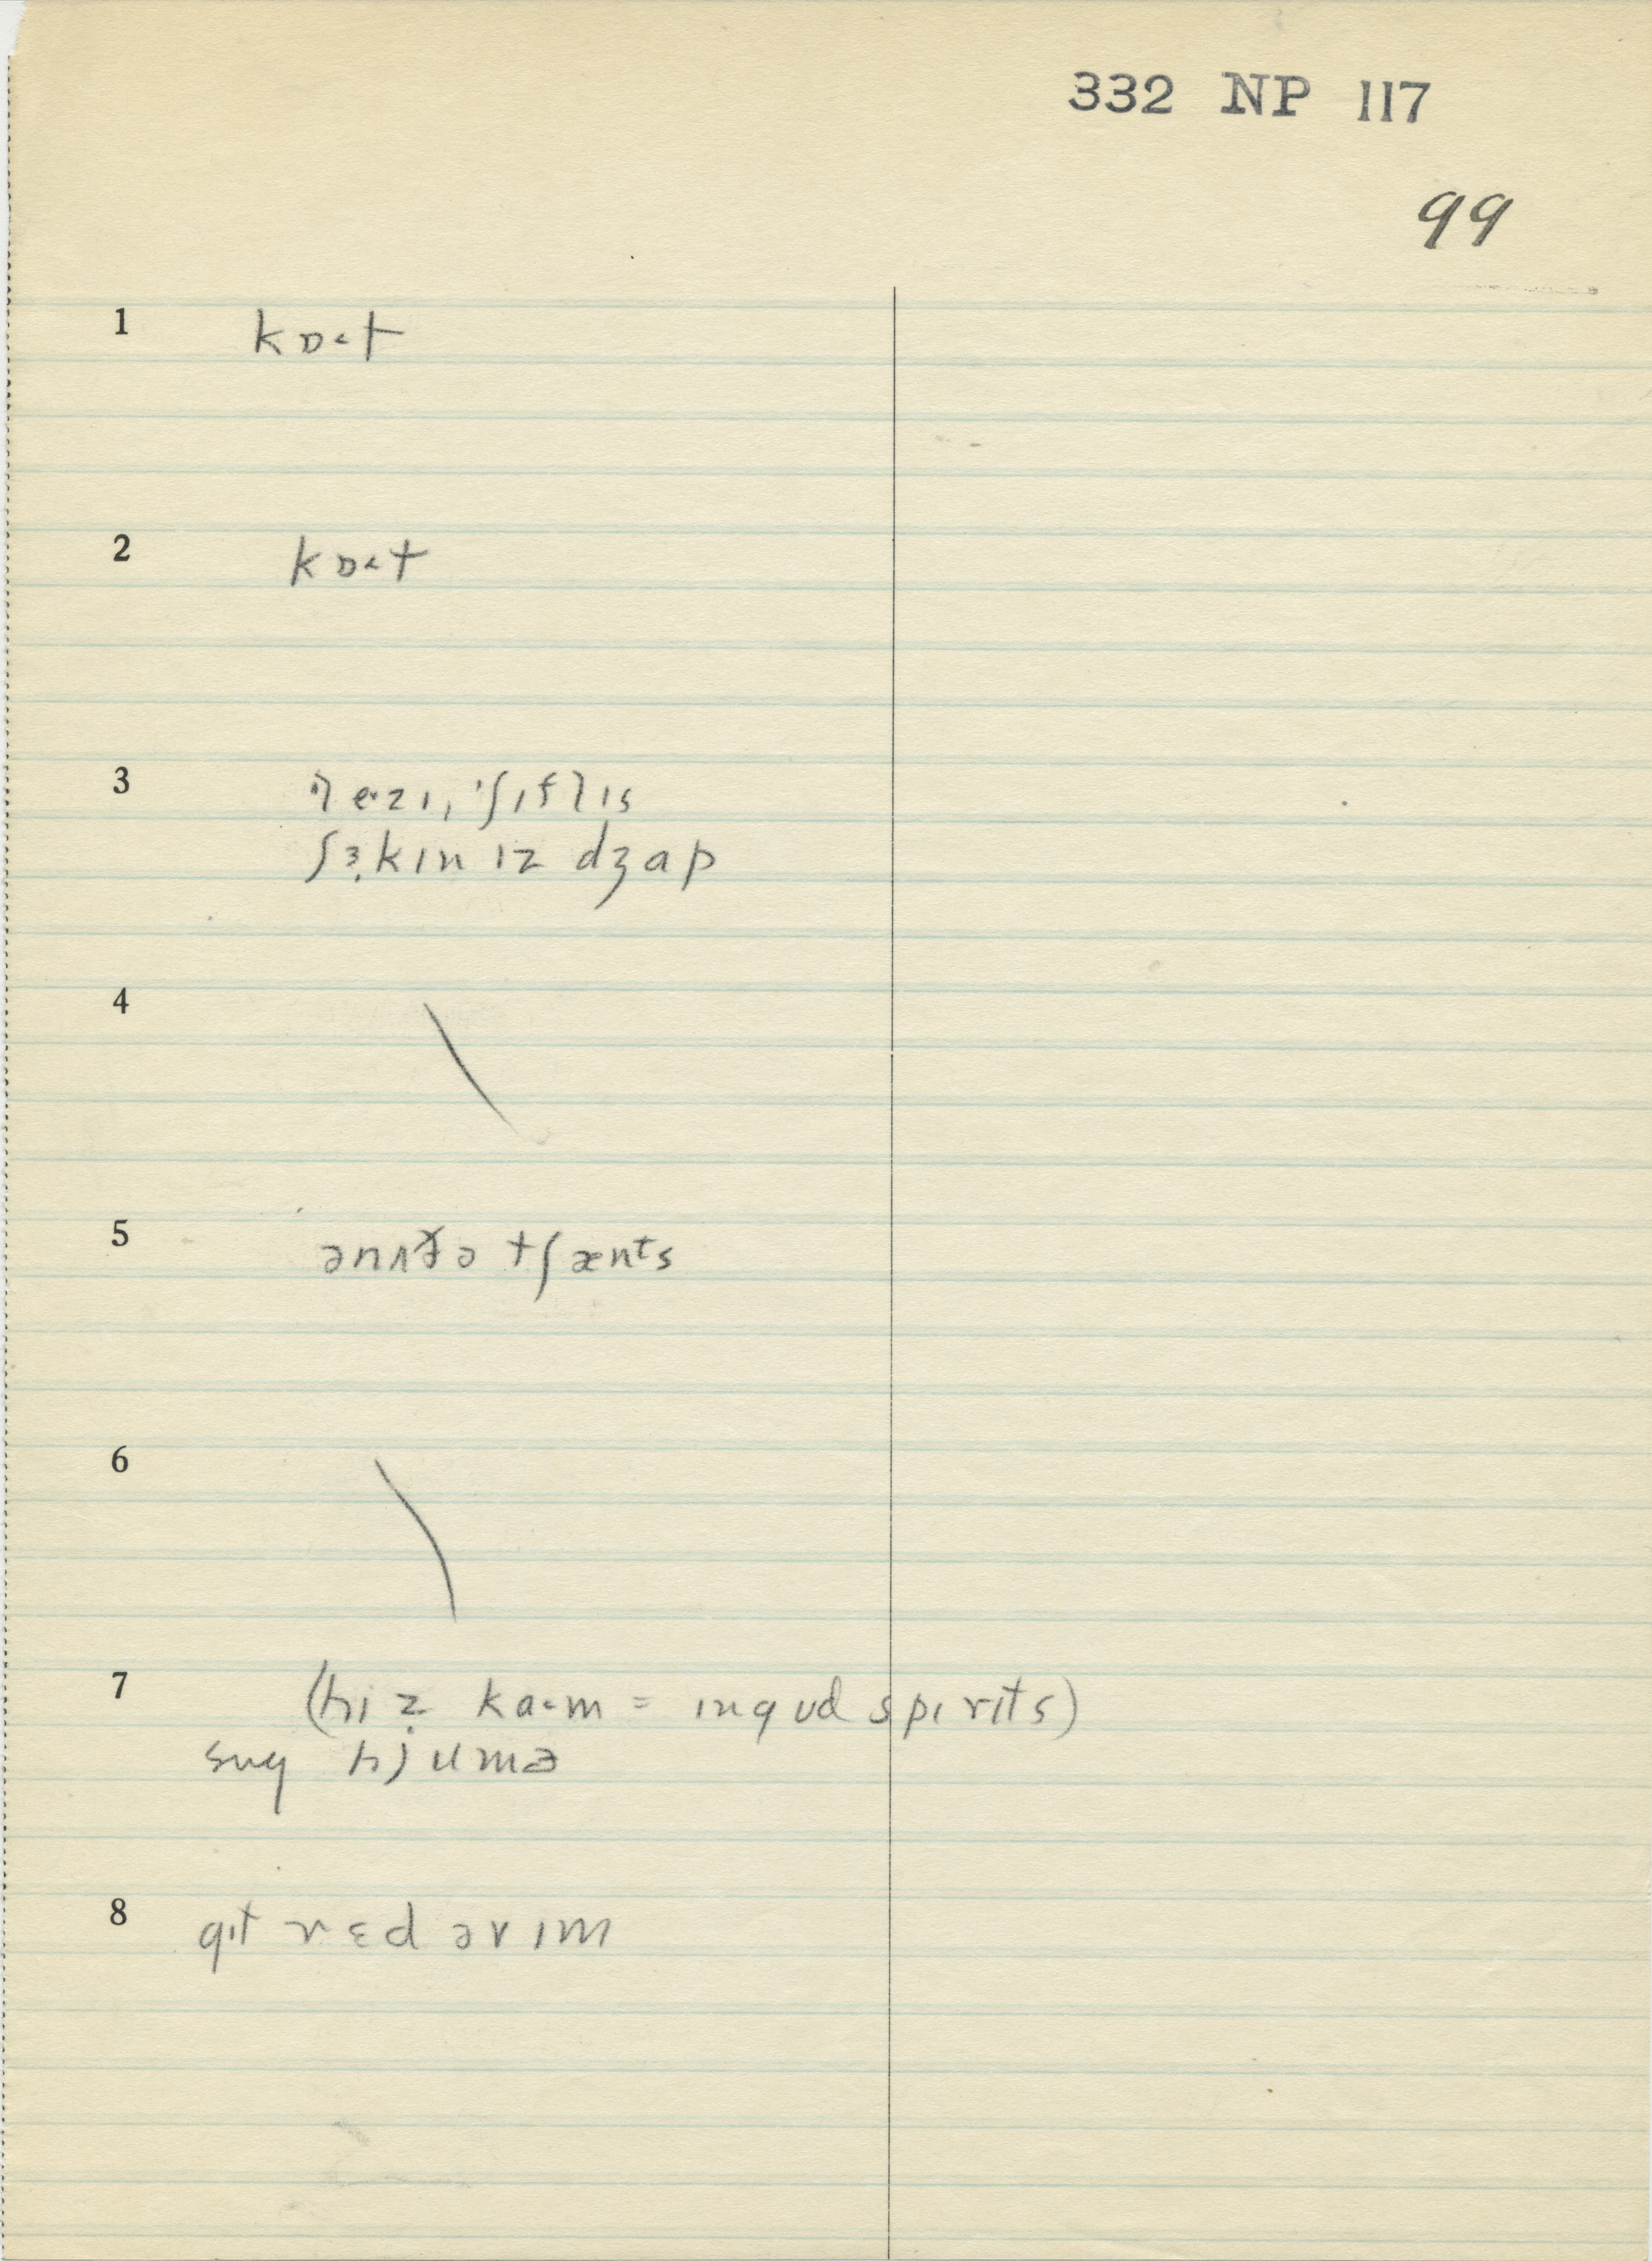 332 NP 117
99
1 kɒ˂t
2 kɒ˂t
3 le˂zɪ, ˈʃɪflɪs
ʃɜ˞kɪn ɪz dʒɑp
4
5 ənʌðə tʃænᵗs
6
7 (hi z̩ ka˂m = ɪn gʊd spɪrɪts)
sʌŋ hjumə
8 gɪt rɛd əv ɪm